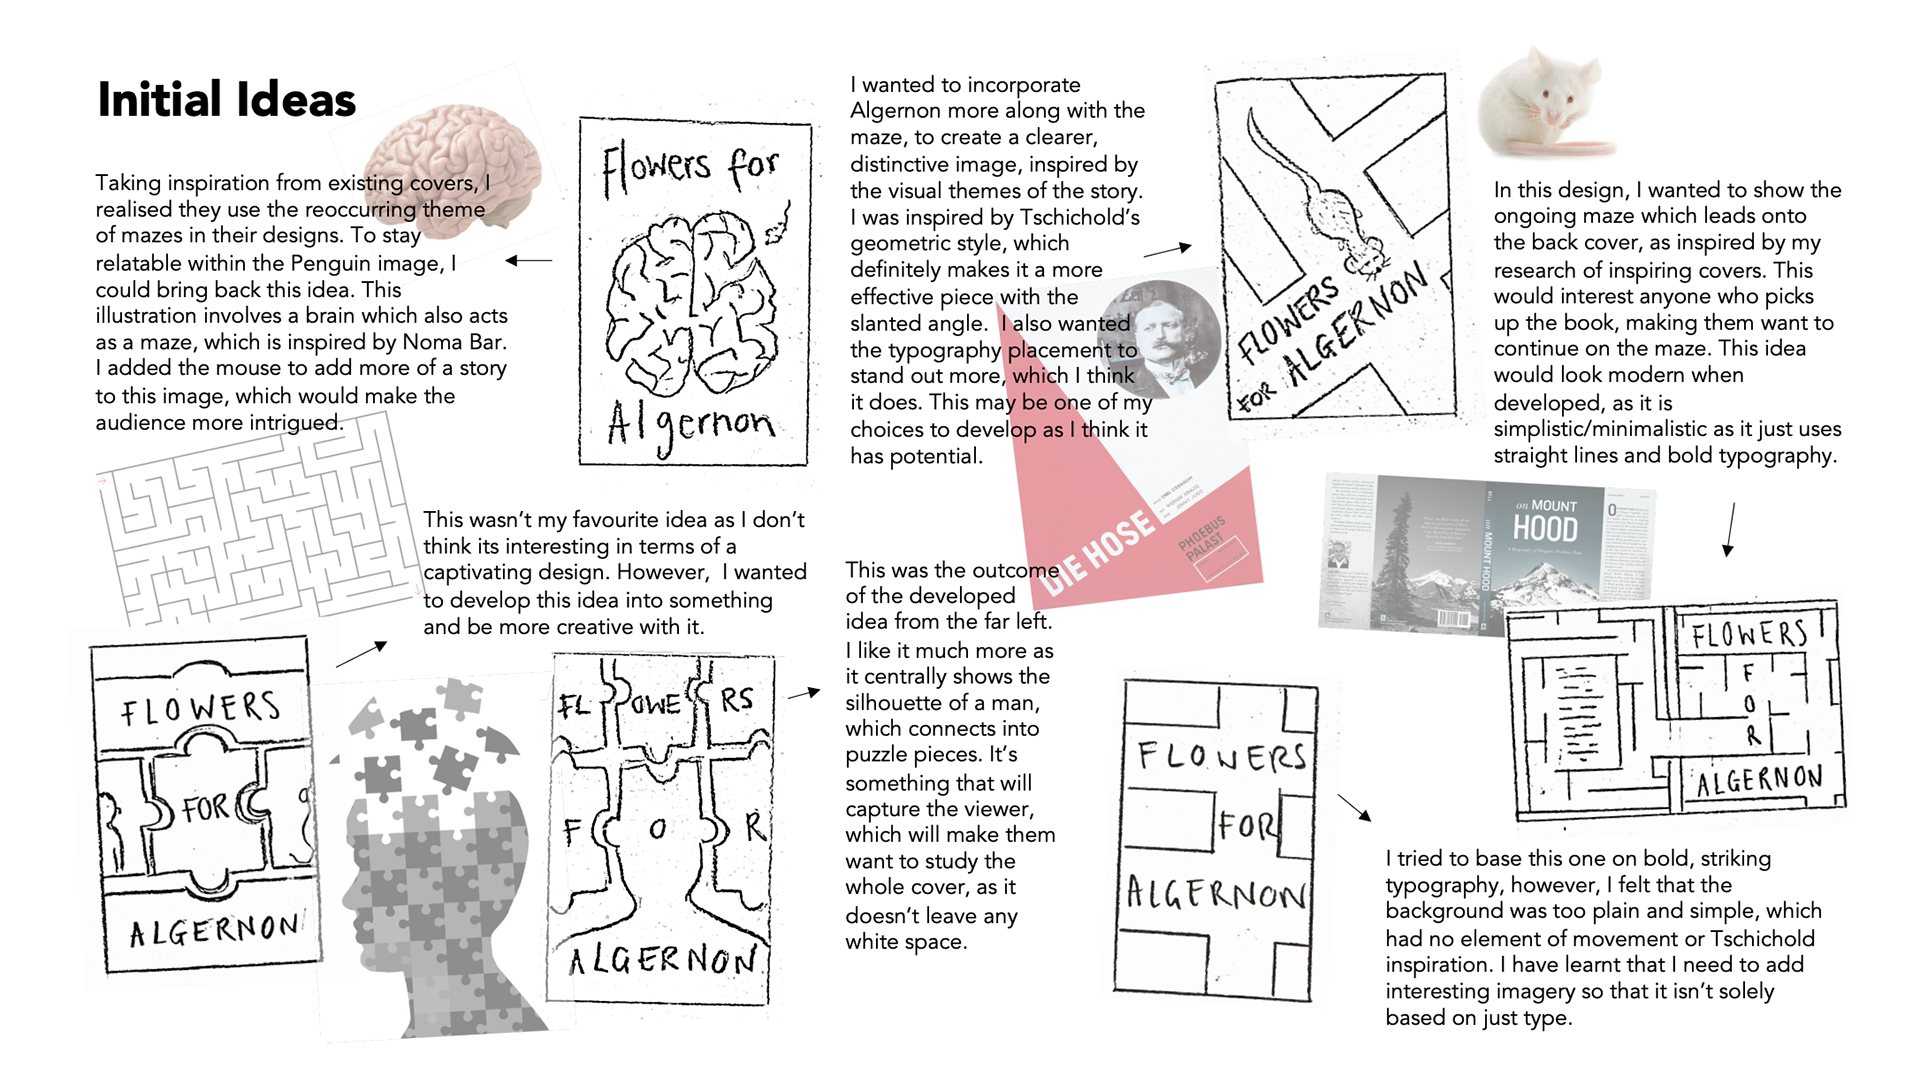 Initial Ideas
Taking inspiration from existing covers, I
realised they use the reoccurring theme
of mazes in their designs. To stay
relatable within the Penguin image, I
could bring back this idea. This
illustration involves a brain which also acts
as a maze, which is inspired by Noma Bar.
I added the mouse to add more of a story
to this image, which would make the
audience more intrigued.
Flowers for
Algernon
I wanted to incorporate
Algernon more along with the
maze, to create a clearer,
distinctive image, inspired by
the visual themes of the story.
I was inspired by Tschichold’s
geometric style, which
definitely makes it a more
effective piece with the
slanted angle.  I also wanted
the typography placement to
stand out more, which I think
it does. This may be one of my
choices to develop as I think it
has potential.
FLOWERS
FOR ALGERNON
In this design, I wanted to show the
ongoing maze which leads onto
the back cover, as inspired by my
research of inspiring covers. This
would interest anyone who picks
up the book, making them want to
continue on the maze. This idea
would look modern when
developed, as it is
simplistic/minimalistic as it just uses
straight lines and bold typography.
DIE HOSE
PHOEBUS
PALAST
on MOUNT
HOOD
BELL
on MOUNT HOOD
This wasn’t my favourite idea as I don’t
think its interesting in terms of a
captivating design. However,  I wanted
to develop this idea into something
and be more creative with it.
FLOWERS
FOR
ALGERNON
FL OWE RS
F O R
ALGERNON
This was the outcome
of the developed
idea from the far left.
I like it much more as
it centrally shows the
silhouette of a man,
which connects into
puzzle pieces. It’s
something that will
capture the viewer,
which will make them
want to study the
whole cover, as it
doesn’t leave any
white space.
FLOWERS
FOR
ALGERNON
FLOWERS
F
O
R
ALGERNON
I tried to base this one on bold, striking
typography, however, I felt that the
background was too plain and simple, which
had no element of movement or Tschichold
inspiration. I have learnt that I need to add
interesting imagery so that it isn’t solely
based on just type.